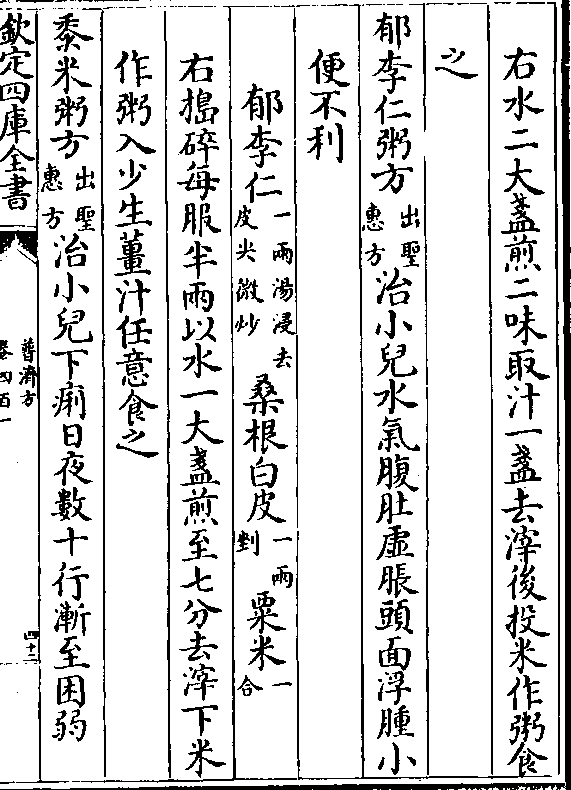 右水二大盞煎二味取汁一盞去滓後投米作粥食
之
郁李仁粥方出聖惠方治小兒水氣腹肚虛脹頭面浮腫小
便不利
郁李仁一兩湯浸去皮尖微炒桑根白皮一兩剉粟米一合
右搗碎每服半兩以水一大盞煎至七分去滓下米
作粥入少生薑汁任意食之
黍米粥方出聖惠方治小兒下痢日夜數十行漸至困弱
欽定四庫全書
普濟方
卷四百一
四十三